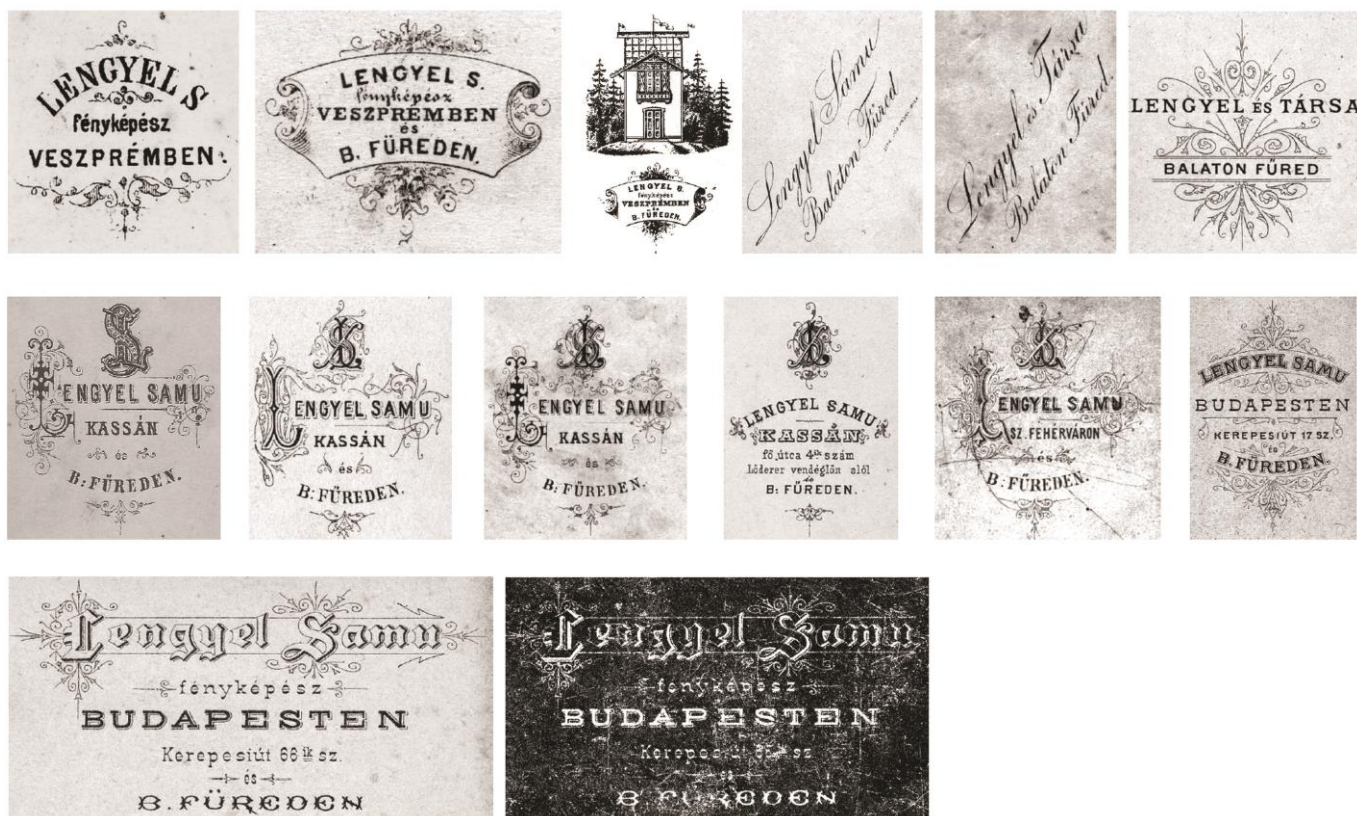 LENGYEL S
fényképész
VESZPRÉMBEN.
LENGYEL S.
fényképész
VESZPRÉMBEN
és
B. FÜREDEN.
LENGYEL S.
fényképész
VESZPRÉMBEN
és
B. FÜREDEN.
Lengyel Samu
Balaton Füred.
Lengyel és Társa
Balaton Füred.
LENGYEL ÉS TÁRSA
BALATON FÜRED
SL
LENGYEL SAMU
KASSÁN
és
B: FÜREDEN.
LS
LENGYEL SAMU
KASSÁN
és
B: FÜREDEN.
LS
LENGYEL SAMU
KASSÁN
és
B: FÜREDEN.
LS
LENGYEL SAMU
KASSÁN
fő útca 4ik szám
Lóderer vendéglőn alól
és
B: FÜREDEN.
LS
LENGYEL SAMU
SZ. FEHÉRVÁRON
és
B: FÜREDEN.
LENGYEL SAMU
BUDAPESTEN
KEREPESIÚT 17 SZ.
ÉS
B. FÜREDEN.
Lengyel Samu
fényképész
BUDAPESTEN
Kerepesiút 66ik sz.
és
B. FÜREDEN
Lengyel Samu
fényképész
BUDAPESTEN
Kerepesiút sz
és
B. FÜREDEN